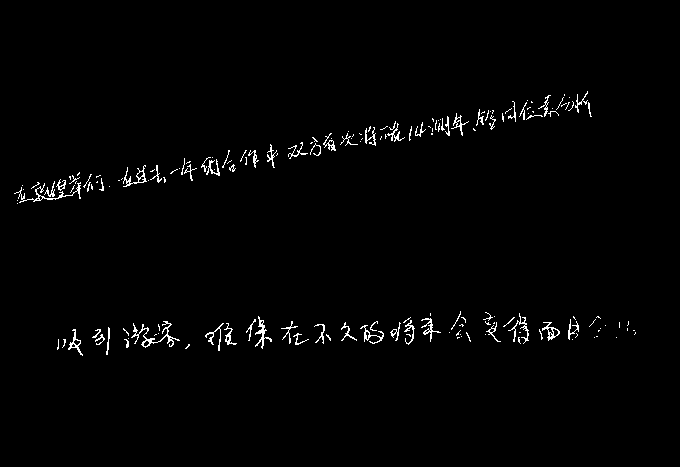 在敦煌举行.在过去一年的合作中双方首次将碳14测年、铅同位素分析
吸引游客,难保在不久的将来会变得面目全非